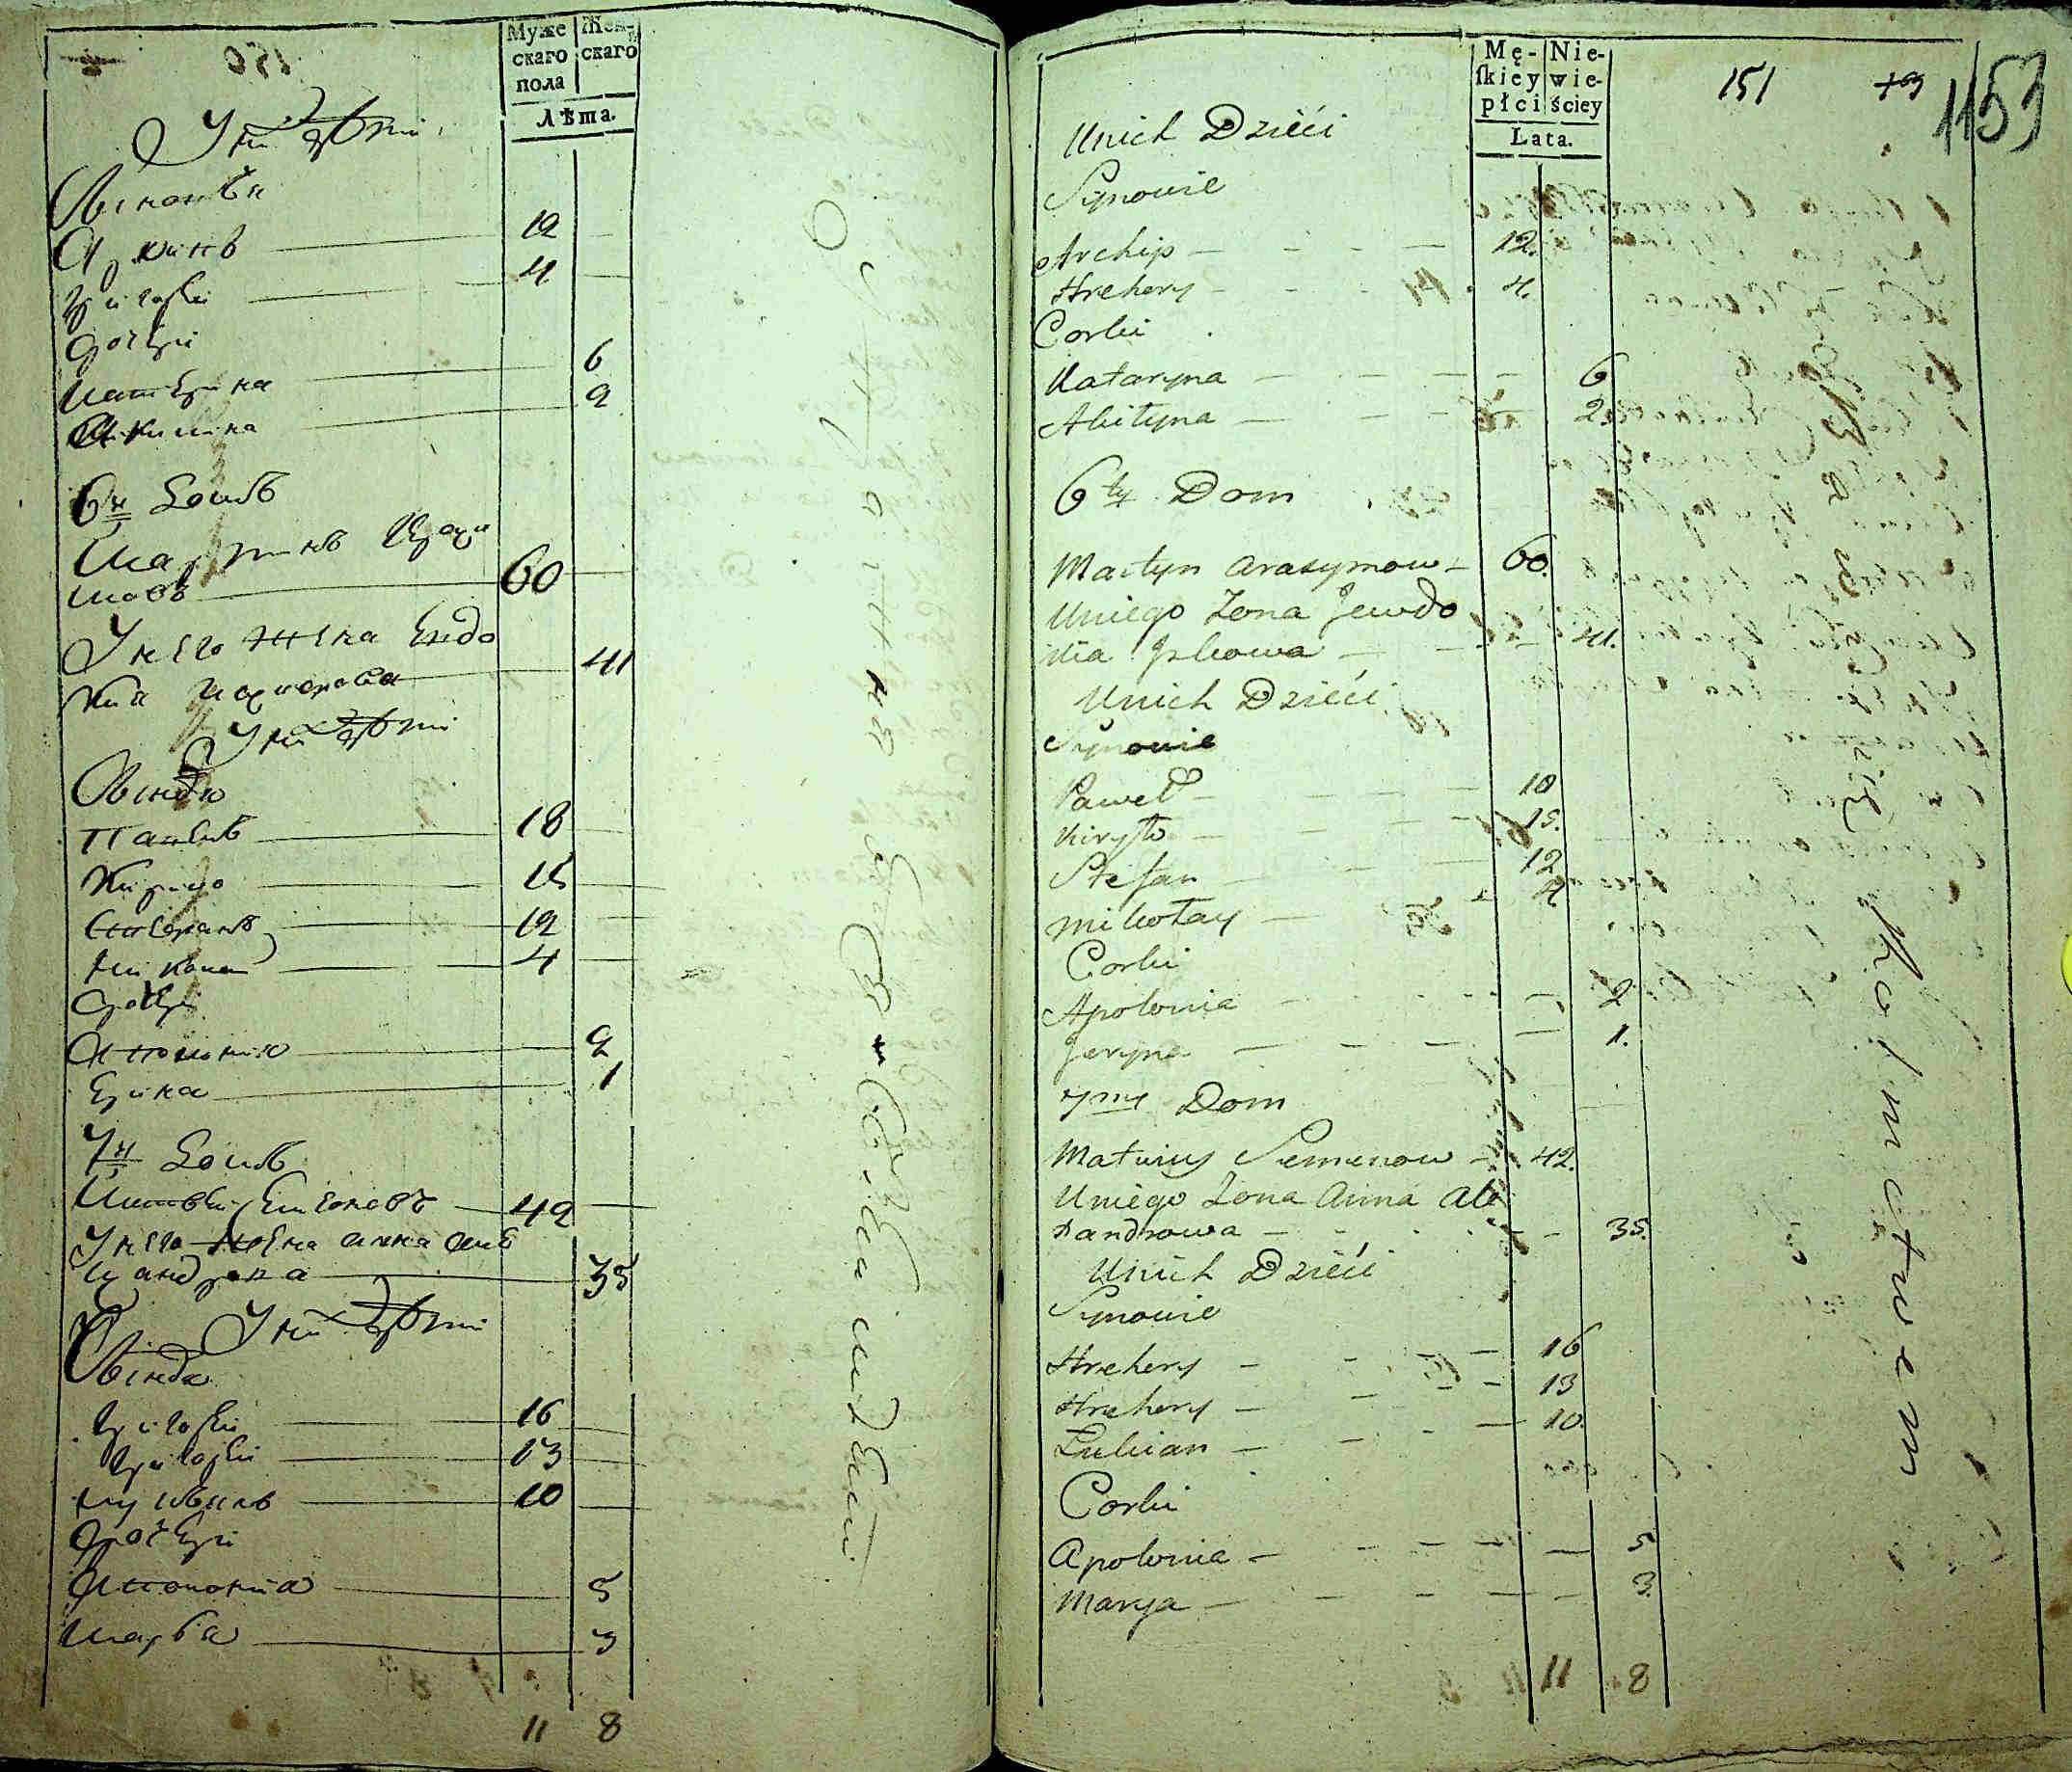 Муже
скаго
пола
Жен-
скаго
Лѣта.
У них дѣти
Синовья
Архипъ 12
Григорей 4
Дочери
Катерина 6
Акилина 2
6й Домъ
Мартинъ Гераси
мовъ 60
У него жена Евдо
кия 41
У них дѣти
Павелъ 18
Кирило 15
Стефанъ 12
Николай 4
Дочери
Аполония 2
Ерина 1
7й Домъ
Матвей Семеновъ 42
У него жена Анна Але
ксандрова 35
У них дѣти
Григорей 16
Григорей 13
Лукьянъ 10
Дочери
Аполония 5
Марья 3
11 8
Mę-
ſkiey
płci
Nie-
wie-
ściey
Lata.
151
1153
Unich Dzieci
Synowie
Archip 12.
Hrehery 4.
Corki
Kataryna 6
Akityna 2.
6ty Dom
Martyn Arasymow 60.
Uniego Zona Jewdo
kia 41.
Unich Dzieci
Synowie
Paweł 18
Kiryło 15.
Stefan 12
Mikołay 4.
Corki
Apolonia 2
Jeryna 1.
7my Dom
Matwiey Semenow 42.
Uniego Zona Anna Ale
xandrowa 35.
Unich Dzieci
Synowie
Hrehery 16
Hrehery 13
Lukian 10.
Corki
Apolonia 5
Marya 3.
11 8